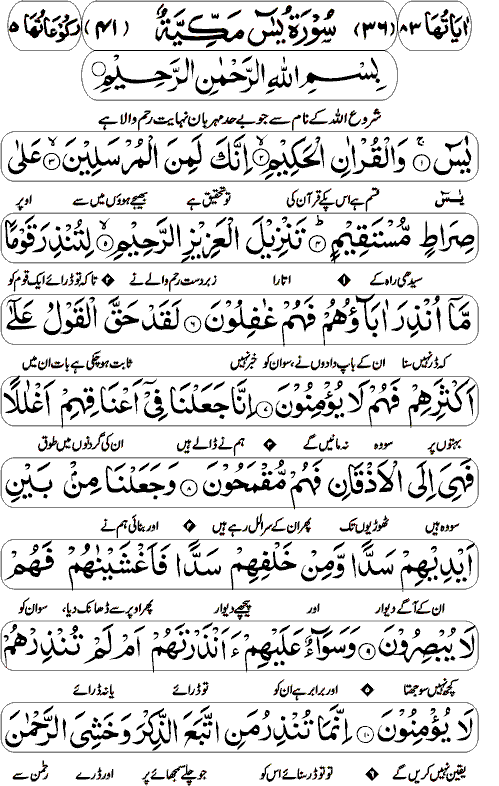 اٰیاتُھَا ٨٣ (٣٦) سُوْرَةُ يٰسٓ مَكِّيَّةٌ (٤١) رُكُوْعَاتُهَا ٥
بِسْمِ اللّٰهِ الرَّحْمٰنِ الرَّحِيْمِ
شروع اللہ کے نام سے جو بے حد مہربان نہایت رحم والا ہے
يٰسٓ ۚ﴿١﴾ وَالْقُرْاٰنِ الْحَكِيْمِ ۙ﴿٢﴾ اِنَّكَ لَمِنَ الْمُرْسَلِيْنَ ۙ﴿٣﴾ عَلٰى
یٰسٓ قسم ہے اس پکے قرآن کی تو تحقیق ہے بھیجے ہوؤں میں سے اوپر
صِرَاطٍ مُّسْتَقِيْمٍ ؕ﴿٤﴾ تَنْزِيْلَ الْعَزِيْزِ الرَّحِيْمِ ۙ﴿٥﴾ لِتُنْذِرَ قَوْمًا
سیدھی راہ کے ١ اتارا زبردست رحم والے نے ٢ تاکہ تو ڈرائے ایک قوم کو
مَّاۤ اُنْذِرَ اٰبَآؤُهُمْ فَهُمْ غٰفِلُوْنَ ﴿٦﴾ لَقَدْ حَقَّ الْقَوْلُ عَلٰٓى
کہ ڈر نہیں سنا ان کے باپ دادوں نے، سو ان کو خبر نہیں ثابت ہو چکی ہے بات ان میں
اَكْثَرِهِمْ فَهُمْ لَا يُؤْمِنُوْنَ ﴿٧﴾ اِنَّا جَعَلْنَا فِيْٓ اَعْنَاقِهِمْ اَغْلٰلًا
بہتوں پر سو وہ نہ مانیں گے ہم نے ڈالے ہیں ان کی گردنوں میں طوق
فَهِيَ اِلَى الْاَذْقَانِ فَهُمْ مُّقْمَحُوْنَ ﴿٨﴾ وَجَعَلْنَا مِنْۢ بَيْنِ
سو وہ ہیں ٹھوڑیوں تک پھر ان کے سر الل رہے ہیں اور بنائی ہم نے
اَيْدِيْهِمْ سَدًّا وَّمِنْ خَلْفِهِمْ سَدًّا فَاَغْشَيْنٰهُمْ فَهُمْ
ان کے آگے دیوار اور پیچھے دیوار پھر اوپر سے ڈھانک دیا، سو ان کو
لَا يُبْصِرُوْنَ ﴿٩﴾ وَسَوَآءٌ عَلَيْهِمْ ءَاَنْذَرْتَهُمْ اَمْ لَمْ تُنْذِرْهُمْ
کچھ نہیں سوجھتا اور برابر ہے ان کو تو ڈرائے یا نہ ڈرائے
لَا يُؤْمِنُوْنَ ﴿١٠﴾ اِنَّمَا تُنْذِرُ مَنِ اتَّبَعَ الذِّكْرَ وَخَشِيَ الرَّحْمٰنَ
یقین نہیں کریں گے ٦ تو تو ڈر سنائے اس کو جو چلے سمجھائے پر اور ڈرے رحمٰن سے